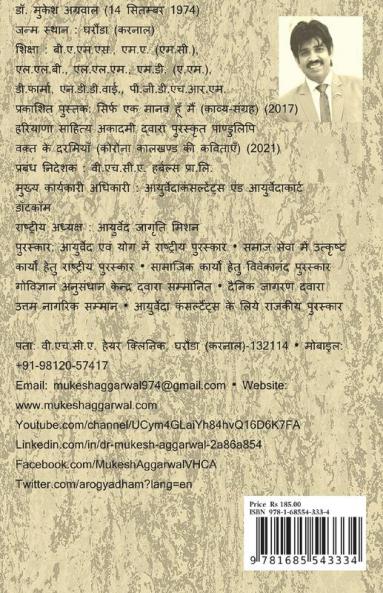 डॉ. मुकेश अग्रवाल (14 सितम्बर 1974)
जन्म स्थान : घरौंडा (करनाल)
शिक्षा : बी.ए.एम.एस. एम.ए. (एम.सी.),
एल.एल.बी., एल.एल.एम., एम.डी. (ए.एम.),
डी.फार्मा, एन.डी.डी.वाई., पी.जी.डी.एच.आर.एम.
प्रकाशित पुस्तक: सिर्फ एक मानव हूँ मैं (काव्य-संग्रह) (2017)
हरियाणा साहित्य अकादमी द्वारा पुरस्कृत पाण्डुलिपि
वक्त के दरमियाँ (कोरोना कालखण्ड की कविताएँ) (2021)
प्रबंध निदेशक : वी.एच.सी.ए. हर्बल्स प्रा.लि.
मुख्य कार्यकारी अधिकारी : आयुर्वेदाकंसल्टेंट्स एंड आयुर्वेदाकार्ट
डॉटकॉम
राष्ट्रीय अध्यक्ष : आयुर्वेद जागृति मिशन
पुरस्कार: आयुर्वेद एवं योग में राष्ट्रीय पुरस्कार • समाज सेवा में उत्कृष्ट
कार्यों हेतु राष्ट्रीय पुरस्कार • सामाजिक कार्यों हेतु विवेकानंद पुरस्कार
गोविज्ञान अनुसंधान केन्द्र द्वारा सम्मानित • दैनिक जागरण द्वारा
उत्तम नागरिक सम्मान • आयुर्वेदा कंसल्टेंट्स के लिये राजकीय पुरस्कार
पता: वी.एच.सी.ए. हेयर क्लिनिक, घरौंडा (करनाल)-132114 • मोबाइल:
+91-98120-57417
Email: mukeshaggarwal974@gmail.com • Website:
www.mukeshaggarwal.com
Youtube.com/channel/UCym4GLaiYh84hvQ16D6K7FA
Linkedin.com/in/dr-mukesh-aggarwal-2a86a854
Facebook.com/MukeshAggarwalVHCA
Twitter.com/arogyadham?lang=en
Price Rs 185.00
ISBN 978-1-68554-333-4
9 781685 543334